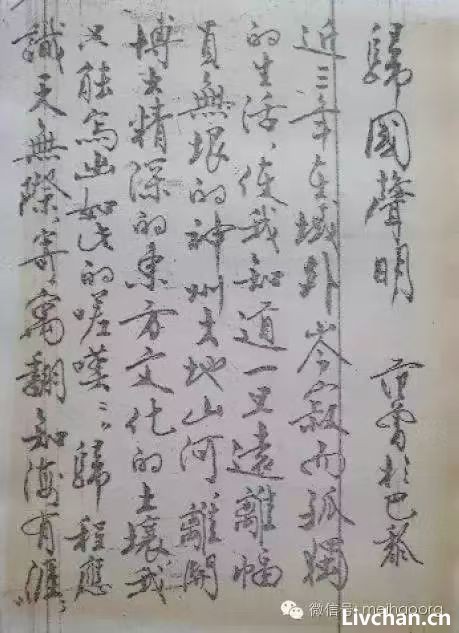 歸國聲明 范曾於巴黎
近三年在域外岑寂而孤獨
的生活、使我知道一旦遠離幅
員無垠的神州大地山河、離開
博大精深的東方文化的土壤我
只能寫出如此的嗟嘆：歸程應
識天無際、寄寓翻知海有涯。
微信号: meihaoorg
Livchan.cn